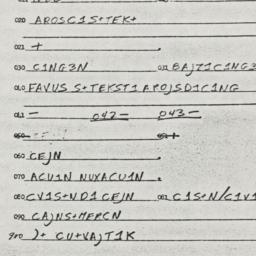 020 AROSC1S+TEK+
021 +
030 C1NG3N 031 BAJZ1C1NG3
040 FAVUS S+TEKST1 APOJSD1C1NG
041 — 042 — 043 —
060 CEJN
070 ACU1N NUXACU1N
080 CV1S+ND1 CEJN 081 C1S+N/C1V1
090 CAJNS+MERCN
900 )+ CU+VAJT1K